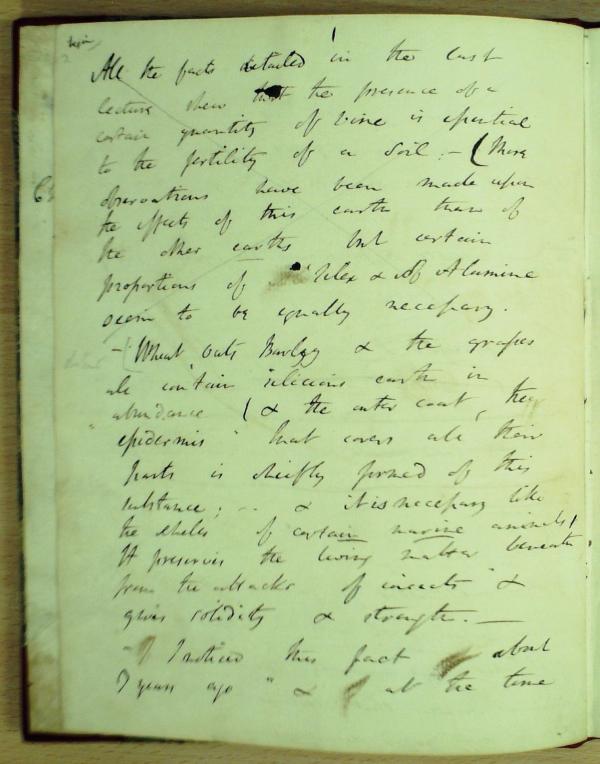 1
All the facts detailed in the last
lecture shew that the presence of a
certain quantity of lime is essential
to the fertility of a Soil; – (More
observations have been made upon
the effects of this earth than of
the other earths but certain
proportions of Silex & of Alumine
seem to be equally necessary.
– Wheat Oats Barley & the grasses
all contain silicious earth in
abundance ( & the outer coat, the
epidermis" that covers all their
parts is chiefly formed of this
substance; – – & it is necessary like
the shells of certain marine animals /
It preserves the living matter beneath
from the attacks of insects" &
gives solidity & strength. —
– I noticed this fact about
7 years ago " & at the time